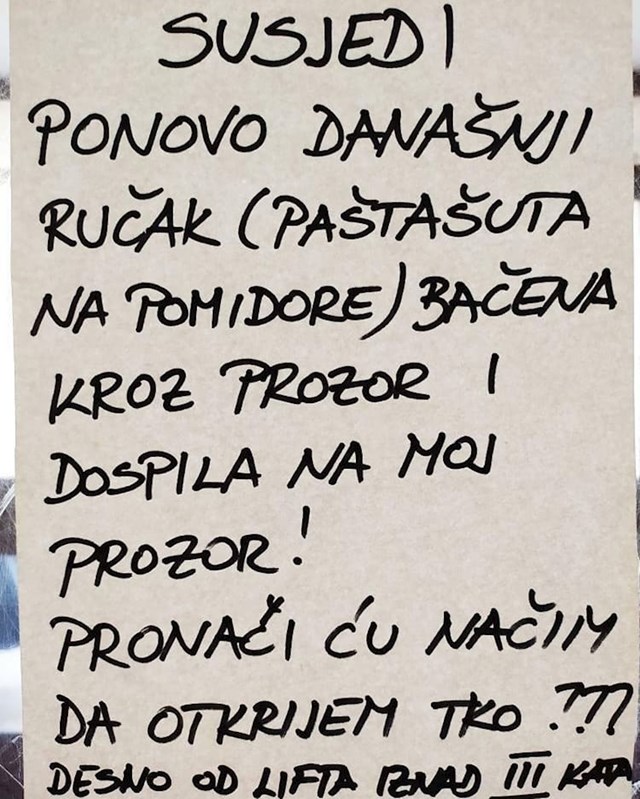 SUSJEDI
PONOVO DANAŠNJI
RUČAK (PAŠTAŠUTA
NA POMIDORE) BAČENA
KROZ PROZOR I
DOSPILA NA MOJ
PROZOR!
PRONAČI ĆU NAČIN
DA OTKRIJEM TKO ???
DESNO OD LIFTA IZNAD III KATA